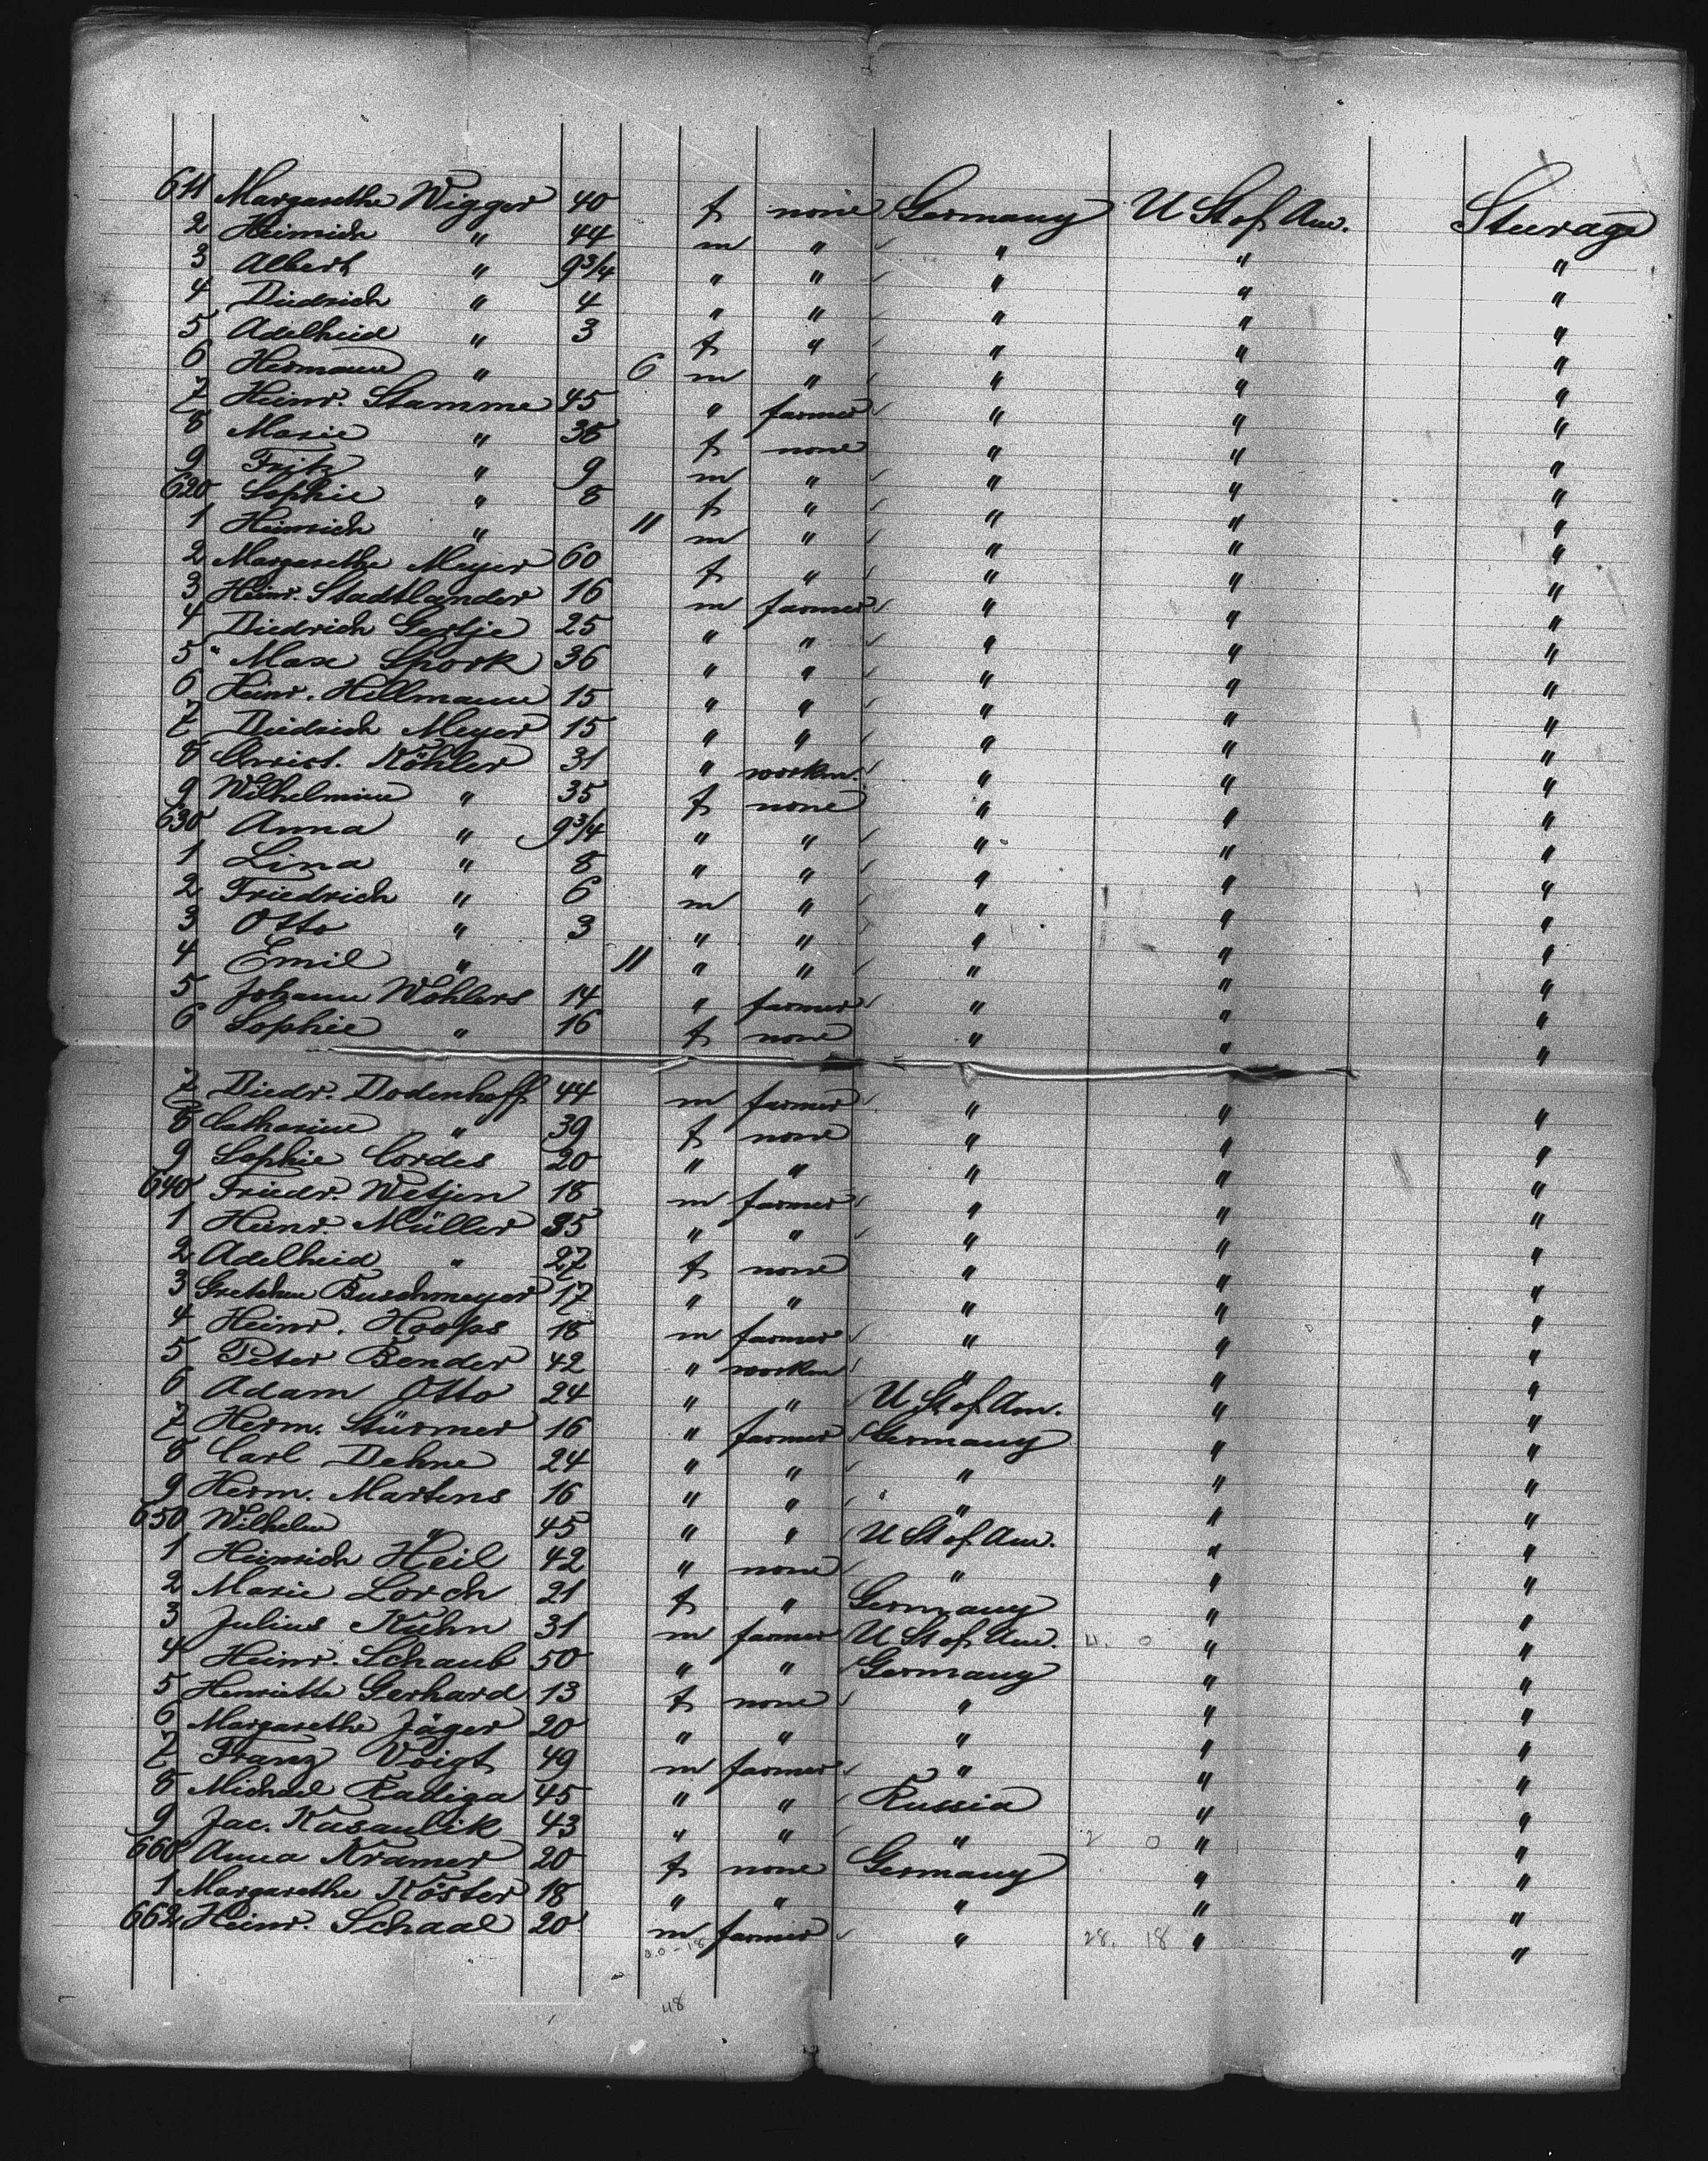 611 Margarethe Wigger 40 f none Germany U St of Am. Steerage
2 Heinrich " 44 m " " " "
3 Albert " 9 3/4 " " " " "
4 Diedrich " 4 " " " " "
5 Adelheid " 3 f " " " "
6 Hermann " 6 m " " " "
7 Heinr. Stamme 45 " farmer " " "
8 Marie " 38 f none " " "
9 Fritz " 9 m " " " "
620 Sophie " 8 f " " " "
1 Heinrich " 11 m " " " "
2 Margarethe Meyer 60 f " " " "
3 Heinr. Stadtlander 16 m farmer " " "
4 Diedrich Gertje 25 " " " " "
5 Max Spork 36 " " " " "
6 Heinr. Hellmann 15 " " " " "
7 Diedrich Meyer 15 " " " " "
8 Christ. Köhler 31 " workm. " " "
9 Wilhelmine " 35 f none " " "
630 Anna " 9 3/4 " " " " "
1 Lina " 8 " " " " "
2 Friedrich " 6 m " " " "
3 Otto " 3 " " " " "
4 Emil " 11 " " " " "
5 Johann Wohlers 14 " farmer " " "
6 Sophie " 16 f none " " "
7 Diedr. Dodenhoff 44 m farmer " " "
8 Catharine " 39 f none " " "
9 Sophie Cordes 20 " " " " "
640 Friedr. Wetjen 18 m farmer " " "
1 Heinr. Müller 35 " " " " "
2 Adelheid " 27 f none " " "
3 Gretchen Buschmeyer 17 " " " " "
4 Heinr. Hoops 18 m farmer " " "
5 Peter Bender 42 " workm " " "
6 Adam Otto 24 " " U St of Am. " "
7 Herm. Stürmer 16 " farmer Germany " "
8 Carl Dehne 24 " " " " "
9 Herm. Martens 16 " " " " "
650 Wilhelm " 45 " " U St of Am. " "
1 Heinrich Heil 42 " none " " "
2 Marie Lorch 21 f " Germany " "
3 Julius Kuhn 31 m farmer U St of Am. " "
4 Heinr. Schaub 50 " " Germany " "
5 Henriette Gerhard 13 f none " " "
6 Margarethe Jäger 20 " " " " "
7 Franz Voigt 49 m farmer " " "
8 Michael Radiga 45 " " Russia " "
9 Jac. Kasaulik 43 " " " 2 0 " "
660 Anna Kramer 20 f none Germany " "
1 Margarethe Köster 18 " " " " "
662 Heinr. Schaal 20 m farmer " 28. 18 " "
48